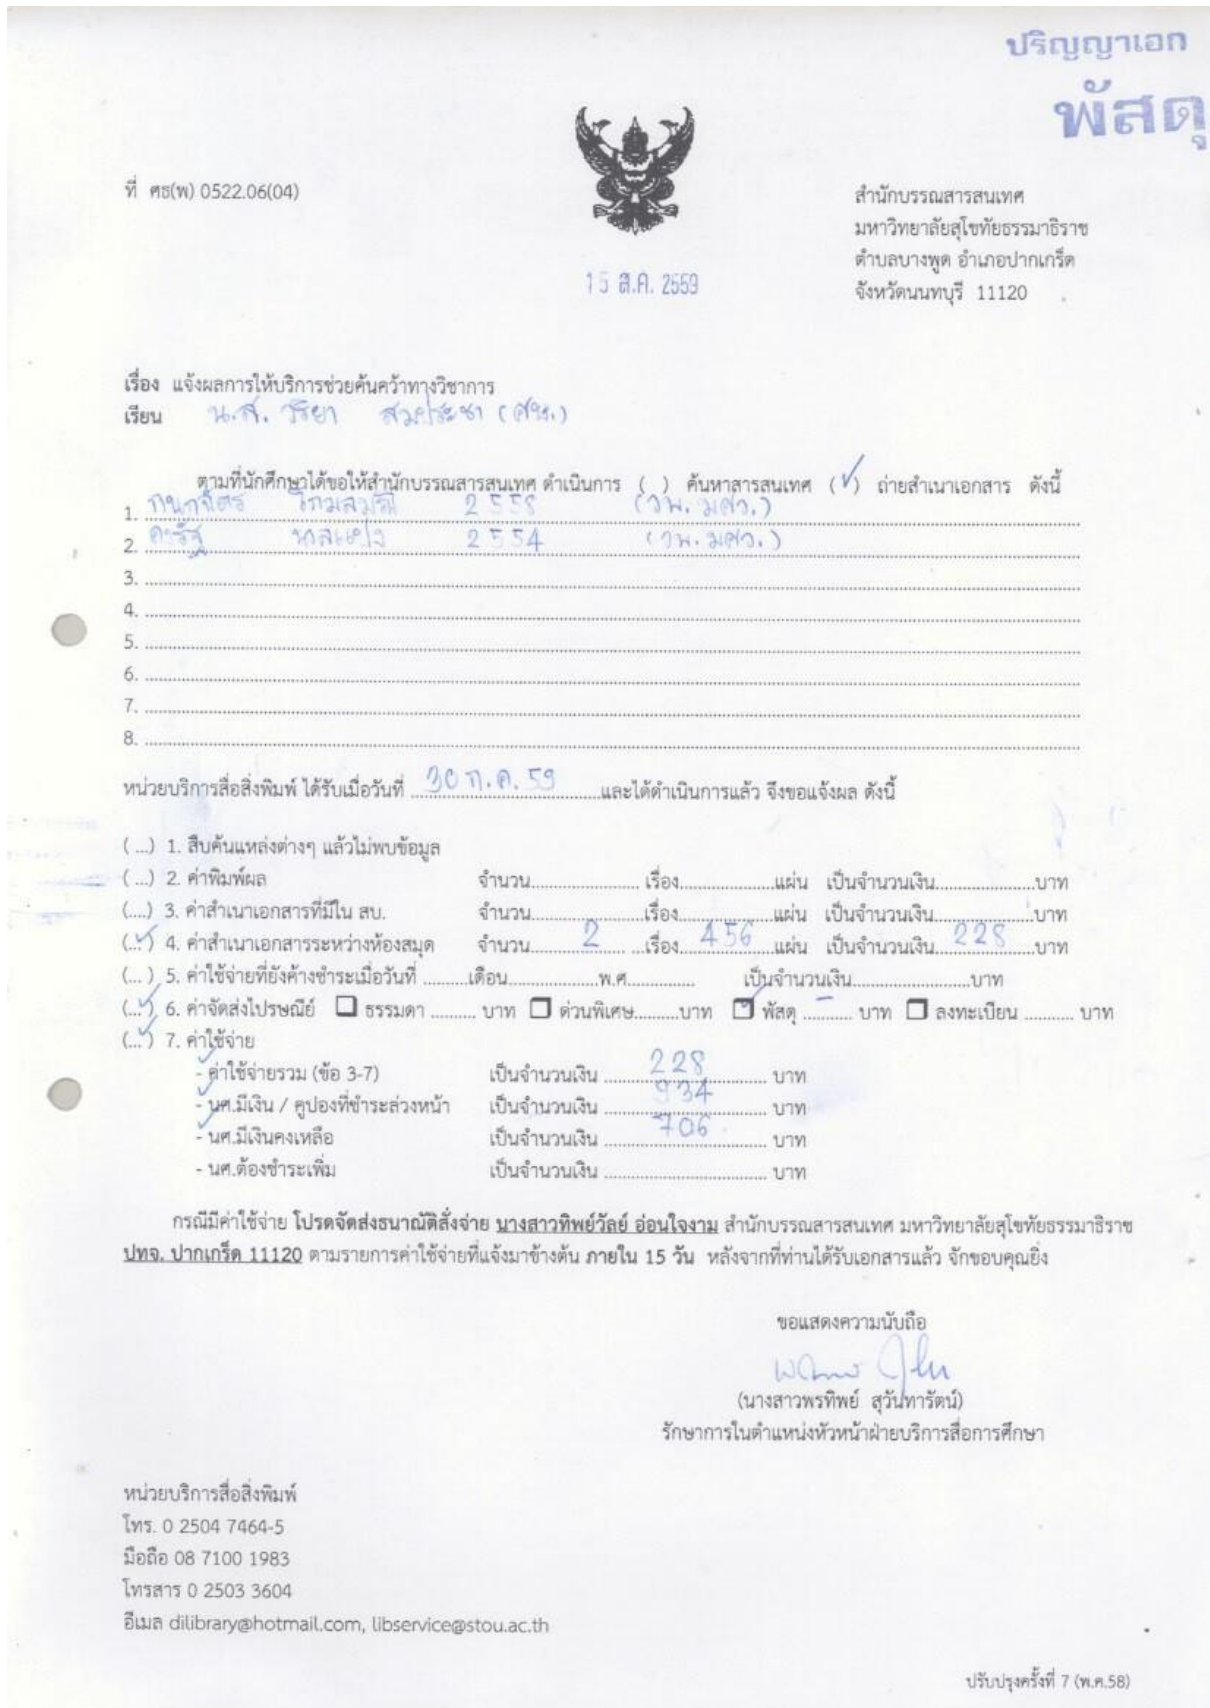 ปริญญาเอก
พัสดุ
ที่ ศธ(พ) 0522.06(04)
สำนักบรรณสารสนเทศ
มหาวิทยาลัยสุโขทัยธรรมาธิราช
ตำบลบางพูด อำเภอปากเกร็ด
จังหวัดนนทบุรี 11120
15 ส.ค. 2559
เรื่อง แจ้งผลการให้บริการช่วยค้นคว้าทางวิชาการ
เรียน น.ส. วริยา สมประชา (ศษ.)
ตามที่นักศึกษาได้ขอให้สำนักบรรณสารสนเทศ ดำเนินการ ( ) ค้นหาสารสนเทศ (✓) ถ่ายสำเนาเอกสาร ดังนี้
1. 2558 (วพ. มศว.)
2. 2554 (วพ. มศว.)
3.
4.
5.
6.
7.
8.
หน่วยบริการสื่อสิ่งพิมพ์ ได้รับเมื่อวันที่ 30 ก.ค. 59 และได้ดำเนินการแล้ว จึงขอแจ้งผล ดังนี้
(...) 1. สืบค้นแหล่งต่างๆ แล้วไม่พบข้อมูล
(...) 2. ค่าพิมพ์ผล จำนวน..........เรื่อง..........แผ่น เป็นจำนวนเงิน..........บาท
(....) 3. ค่าสำเนาเอกสารที่มีใน สบ. จำนวน..........เรื่อง..........แผ่น เป็นจำนวนเงิน..........บาท
(✓) 4. ค่าสำเนาเอกสารระหว่างห้องสมุด จำนวน 2 เรื่อง 456 แผ่น เป็นจำนวนเงิน 228 บาท
(...) 5. ค่าใช้จ่ายที่ยังค้างชำระเมื่อวันที่ ..........เดือน..........พ.ศ.......... เป็นจำนวนเงิน..........บาท
(✓) 6. ค่าจัดส่งไปรษณีย์ ☐ ธรรมดา .......... บาท ☐ ด่วนพิเศษ..........บาท ☑ พัสดุ – บาท ☐ ลงทะเบียน .......... บาท
(✓) 7. ค่าใช้จ่าย
- ค่าใช้จ่ายรวม (ข้อ 3-7) เป็นจำนวนเงิน 228 บาท
- นศ.มีเงิน / คูปองที่ชำระล่วงหน้า เป็นจำนวนเงิน 934 บาท
- นศ.มีเงินคงเหลือ เป็นจำนวนเงิน 706 บาท
- นศ.ต้องชำระเพิ่ม เป็นจำนวนเงิน .......... บาท
กรณีมีค่าใช้จ่าย โปรดจัดส่งธนาณัติสั่งจ่าย นางสาวทิพย์วัลย์ อ่อนใจงาม สำนักบรรณสารสนเทศ มหาวิทยาลัยสุโขทัยธรรมาธิราช
ปทจ. ปากเกร็ด 11120 ตามรายการค่าใช้จ่ายที่แจ้งมาข้างต้น ภายใน 15 วัน หลังจากที่ท่านได้รับเอกสารแล้ว จักขอบคุณยิ่ง
ขอแสดงความนับถือ
(นางสาวพรทิพย์ สุวันทารัตน์)
รักษาการในตำแหน่งหัวหน้าฝ่ายบริการสื่อการศึกษา
หน่วยบริการสื่อสิ่งพิมพ์
โทร. 0 2504 7464-5
มือถือ 08 7100 1983
โทรสาร 0 2503 3604
อีเมล dilibrary@hotmail.com, libservice@stou.ac.th
ปรับปรุงครั้งที่ 7 (พ.ค.58)